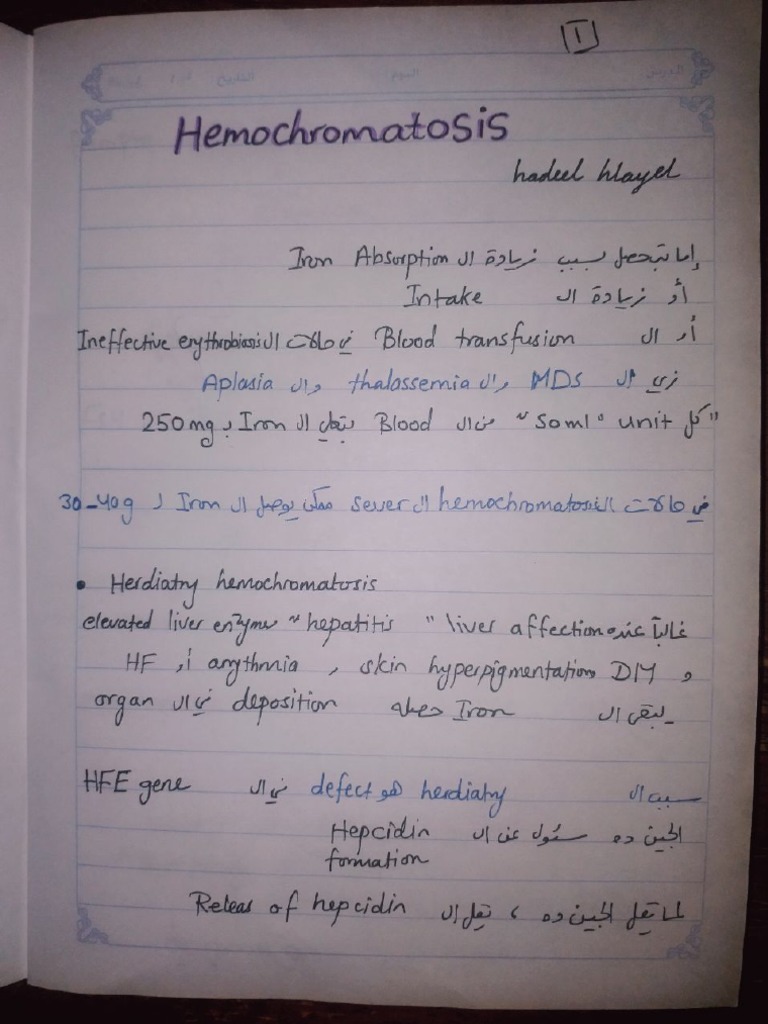 1
Hemochromatosis
hadeel hlayel
إما بتحصل بسبب زيادة ال Iron Absorption
أو زيادة ال Intake
أو ال Blood transfusion في حالات ال Ineffective erythrobiosis
زي ال MDs وال thalassemia وال Aplasia
"كل unit "50ml" من ال Blood بتقلل ال Iron ب 250mg
في حالات ال sever hemochromatosis ممكن يوصل ال Iron ل 30-40g
• Herdiatry hemochromatosis
غالباً عنده liver affection "hepatitis" elevated liver enzyme
و DM skin hyperpigmentation , arrythmia أو HF
يبقى ال Iron حصله deposition في ال organ
سبب ال herdiatry هو defect في ال HFE gene
الجين ده مسئول عن ال Hepcidin
formation
لما يقل الجين ده ، تقل ال Releas of hepcidin